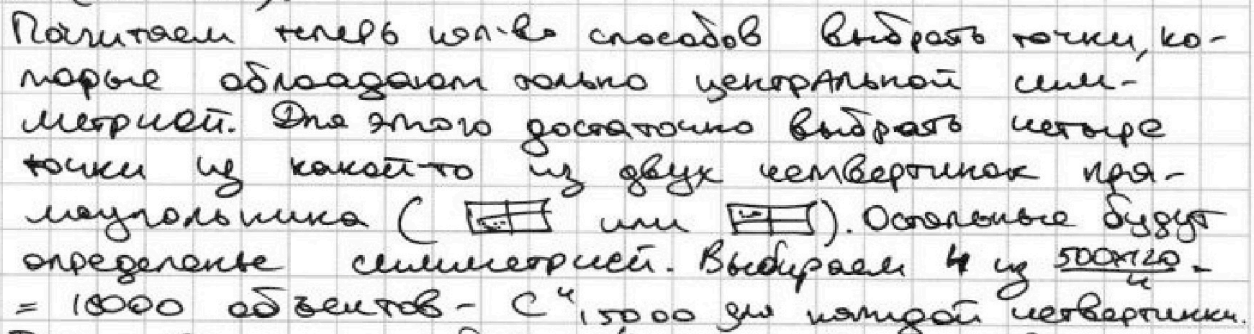 Посчитаем теперь кол-во способов выбрать точки, ко-
торые обладают только центральной сим-
метрией. Для этого достаточно выбрать четыре
точки из какой-то из двух четвертинок пря-
моугольника ( или ). Остальные будут
определены симметрией. Выбираем 4 из 500×120/4 =
= 15000 объектов - C⁴15000 для каждой четвертинки.